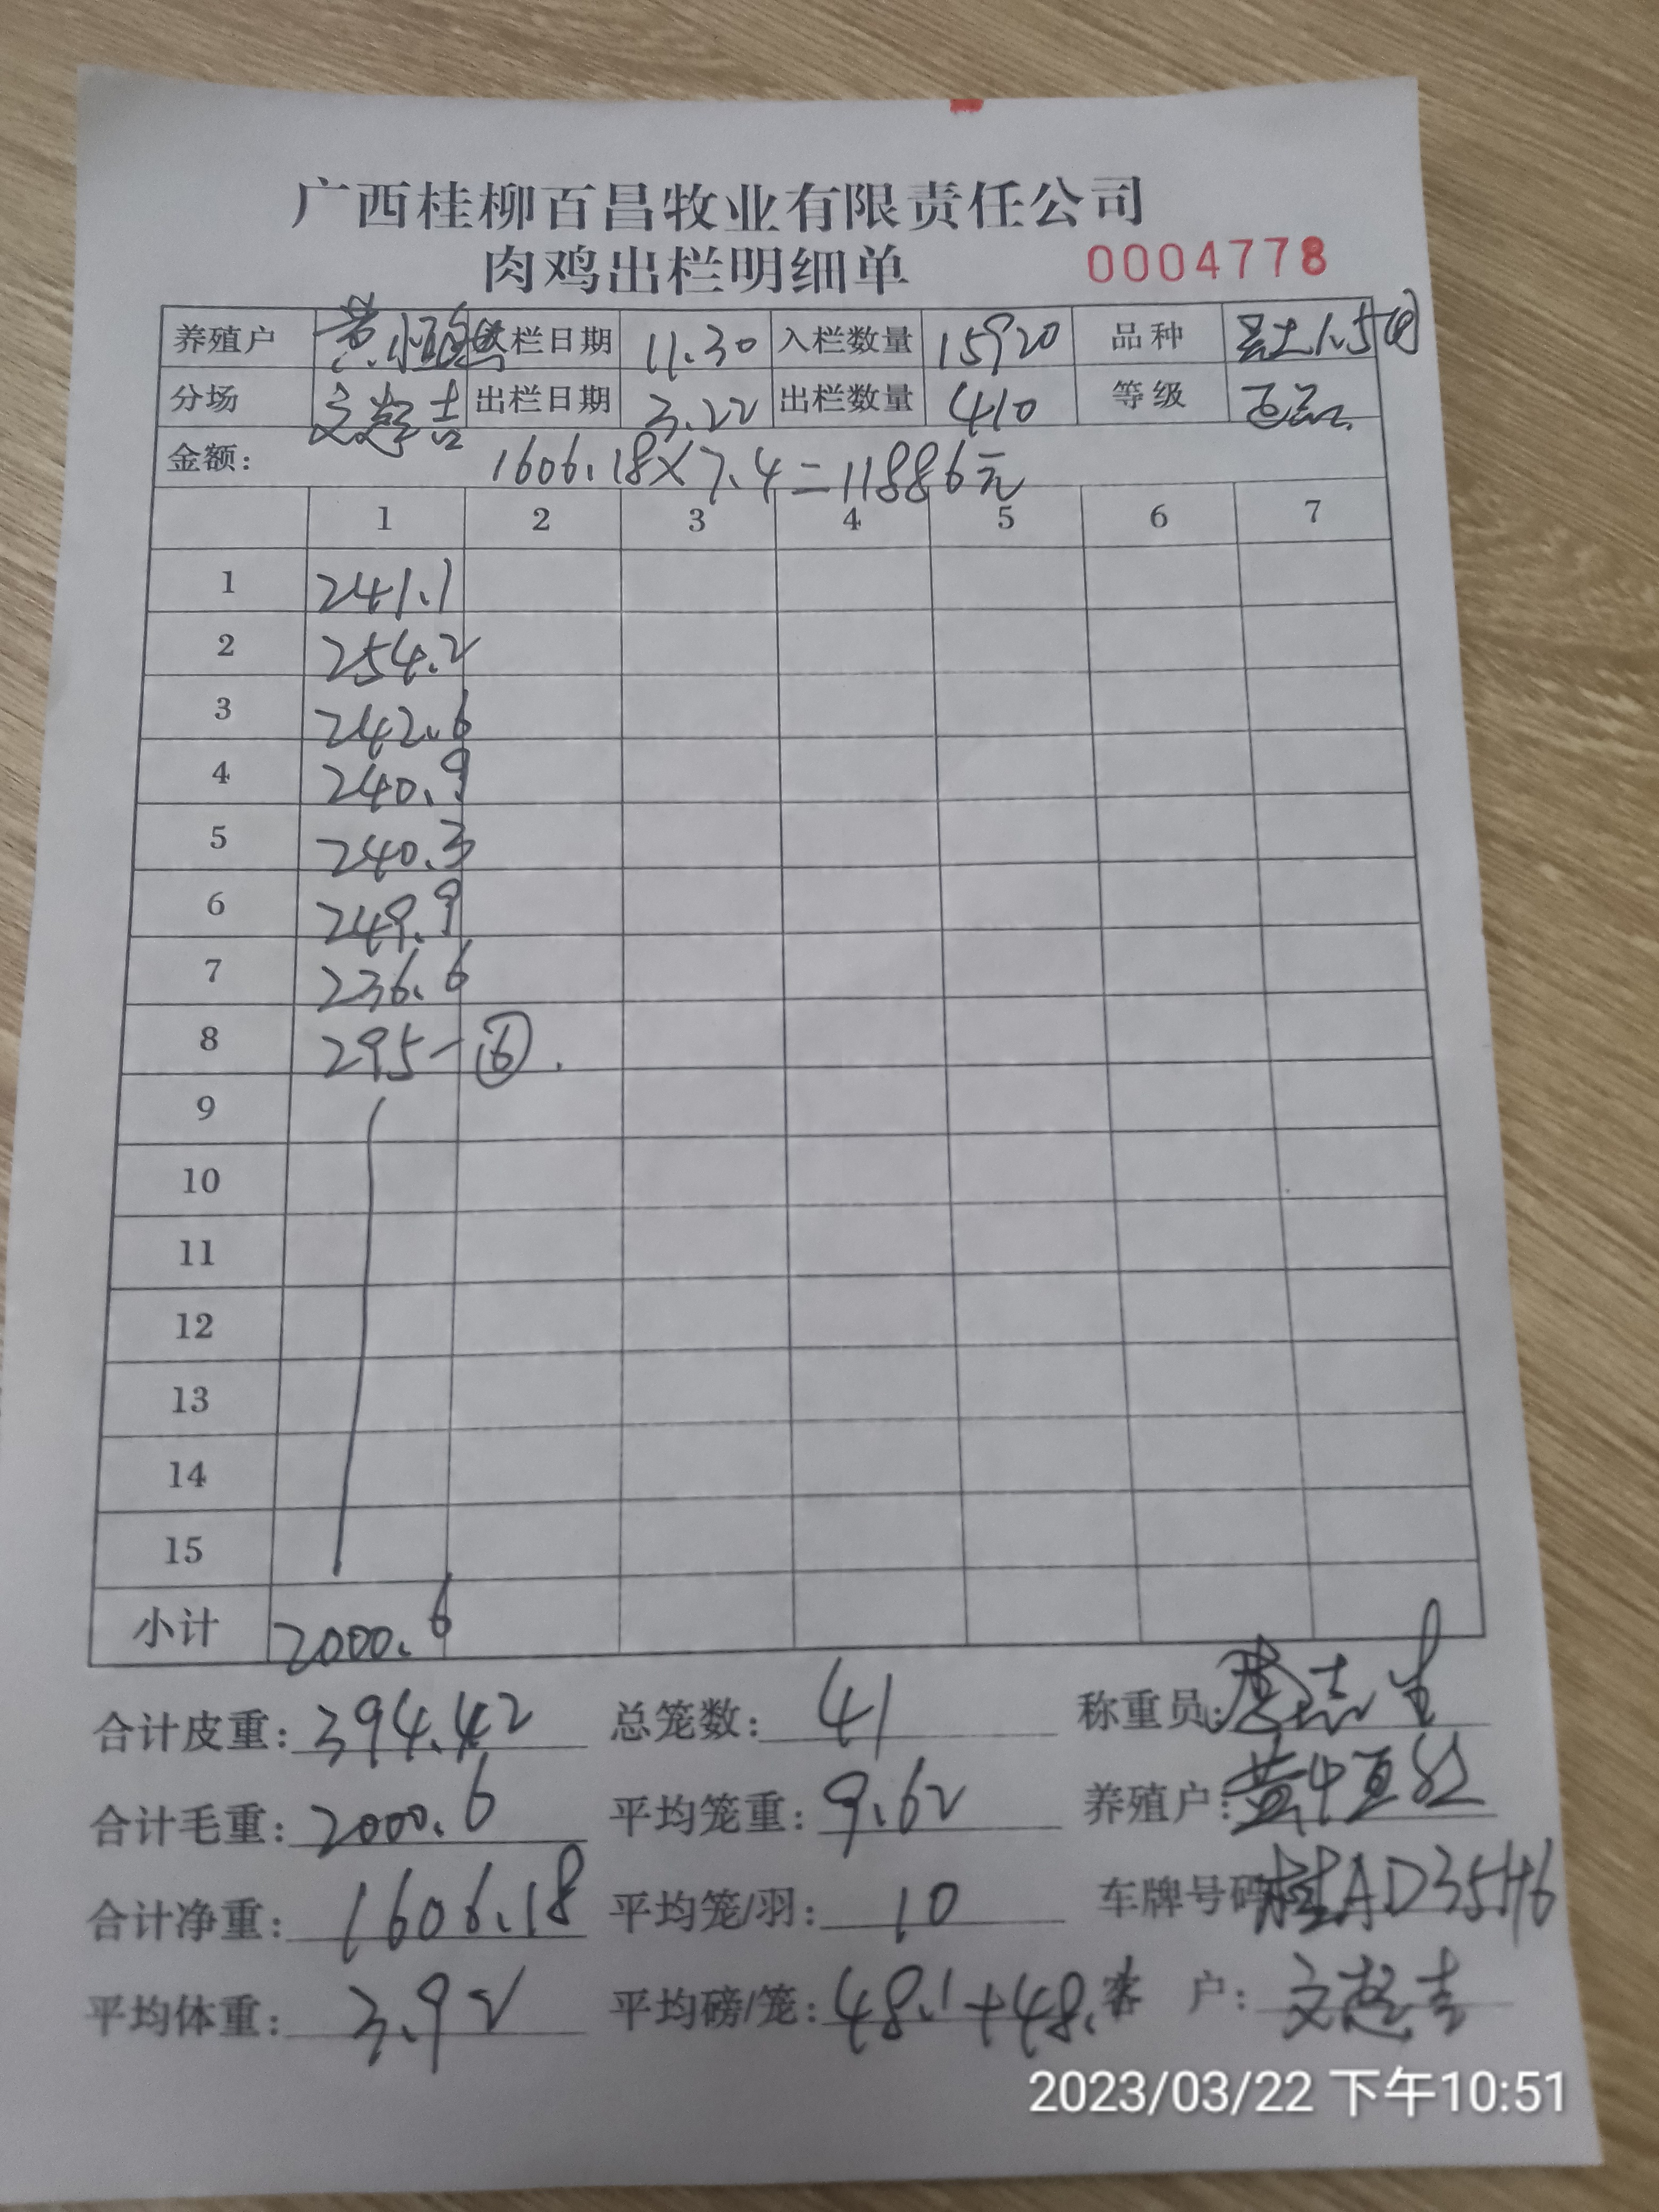 广西桂柳百昌牧业有限责任公司
肉鸡出栏明细单 0004778
养殖户 黄小 入栏日期 11.30 入栏数量 15920 品种 土1.5
分场 文 吉 出栏日期 3.22 出栏数量 410 等级
金额: 1606.18×7.4=11886元
1 2 3 4 5 6 7
1 241.1
2 254.2
3 242.6
4 240.9
5 240.3
6 249.9
7 236.6
8 295-⑥.
9
10
11
12
13
14
15
小计 2000.6
合计皮重: 394.42 总笼数: 41 称重员: 志
合计毛重: 2000.6 平均笼重: 9.62 养殖户: 黄
合计净重: 1606.18 平均笼/羽: 10 车牌号码 桂AD35H6
平均体重: 3.92 平均磅/笼: 48.1+48. 客 户: 文 吉
2023/03/22 下午10:51